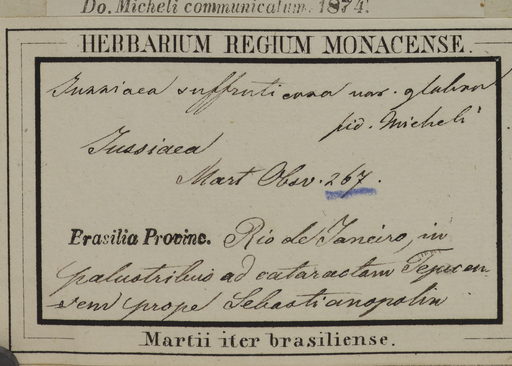 Do. Micheli communicatum. 1874.
HERBARIUM REGIUM MONACENSE.
Jussiaea suffruticosa var. glabra
fid. Micheli
Jussiaea
Mart Obsv. 267.
Brasilia Provinc. Rio de Janeiro, in
palustribus ad cataractam Tejucen
sem prope Sebastianopolin
Martii iter brasiliense.